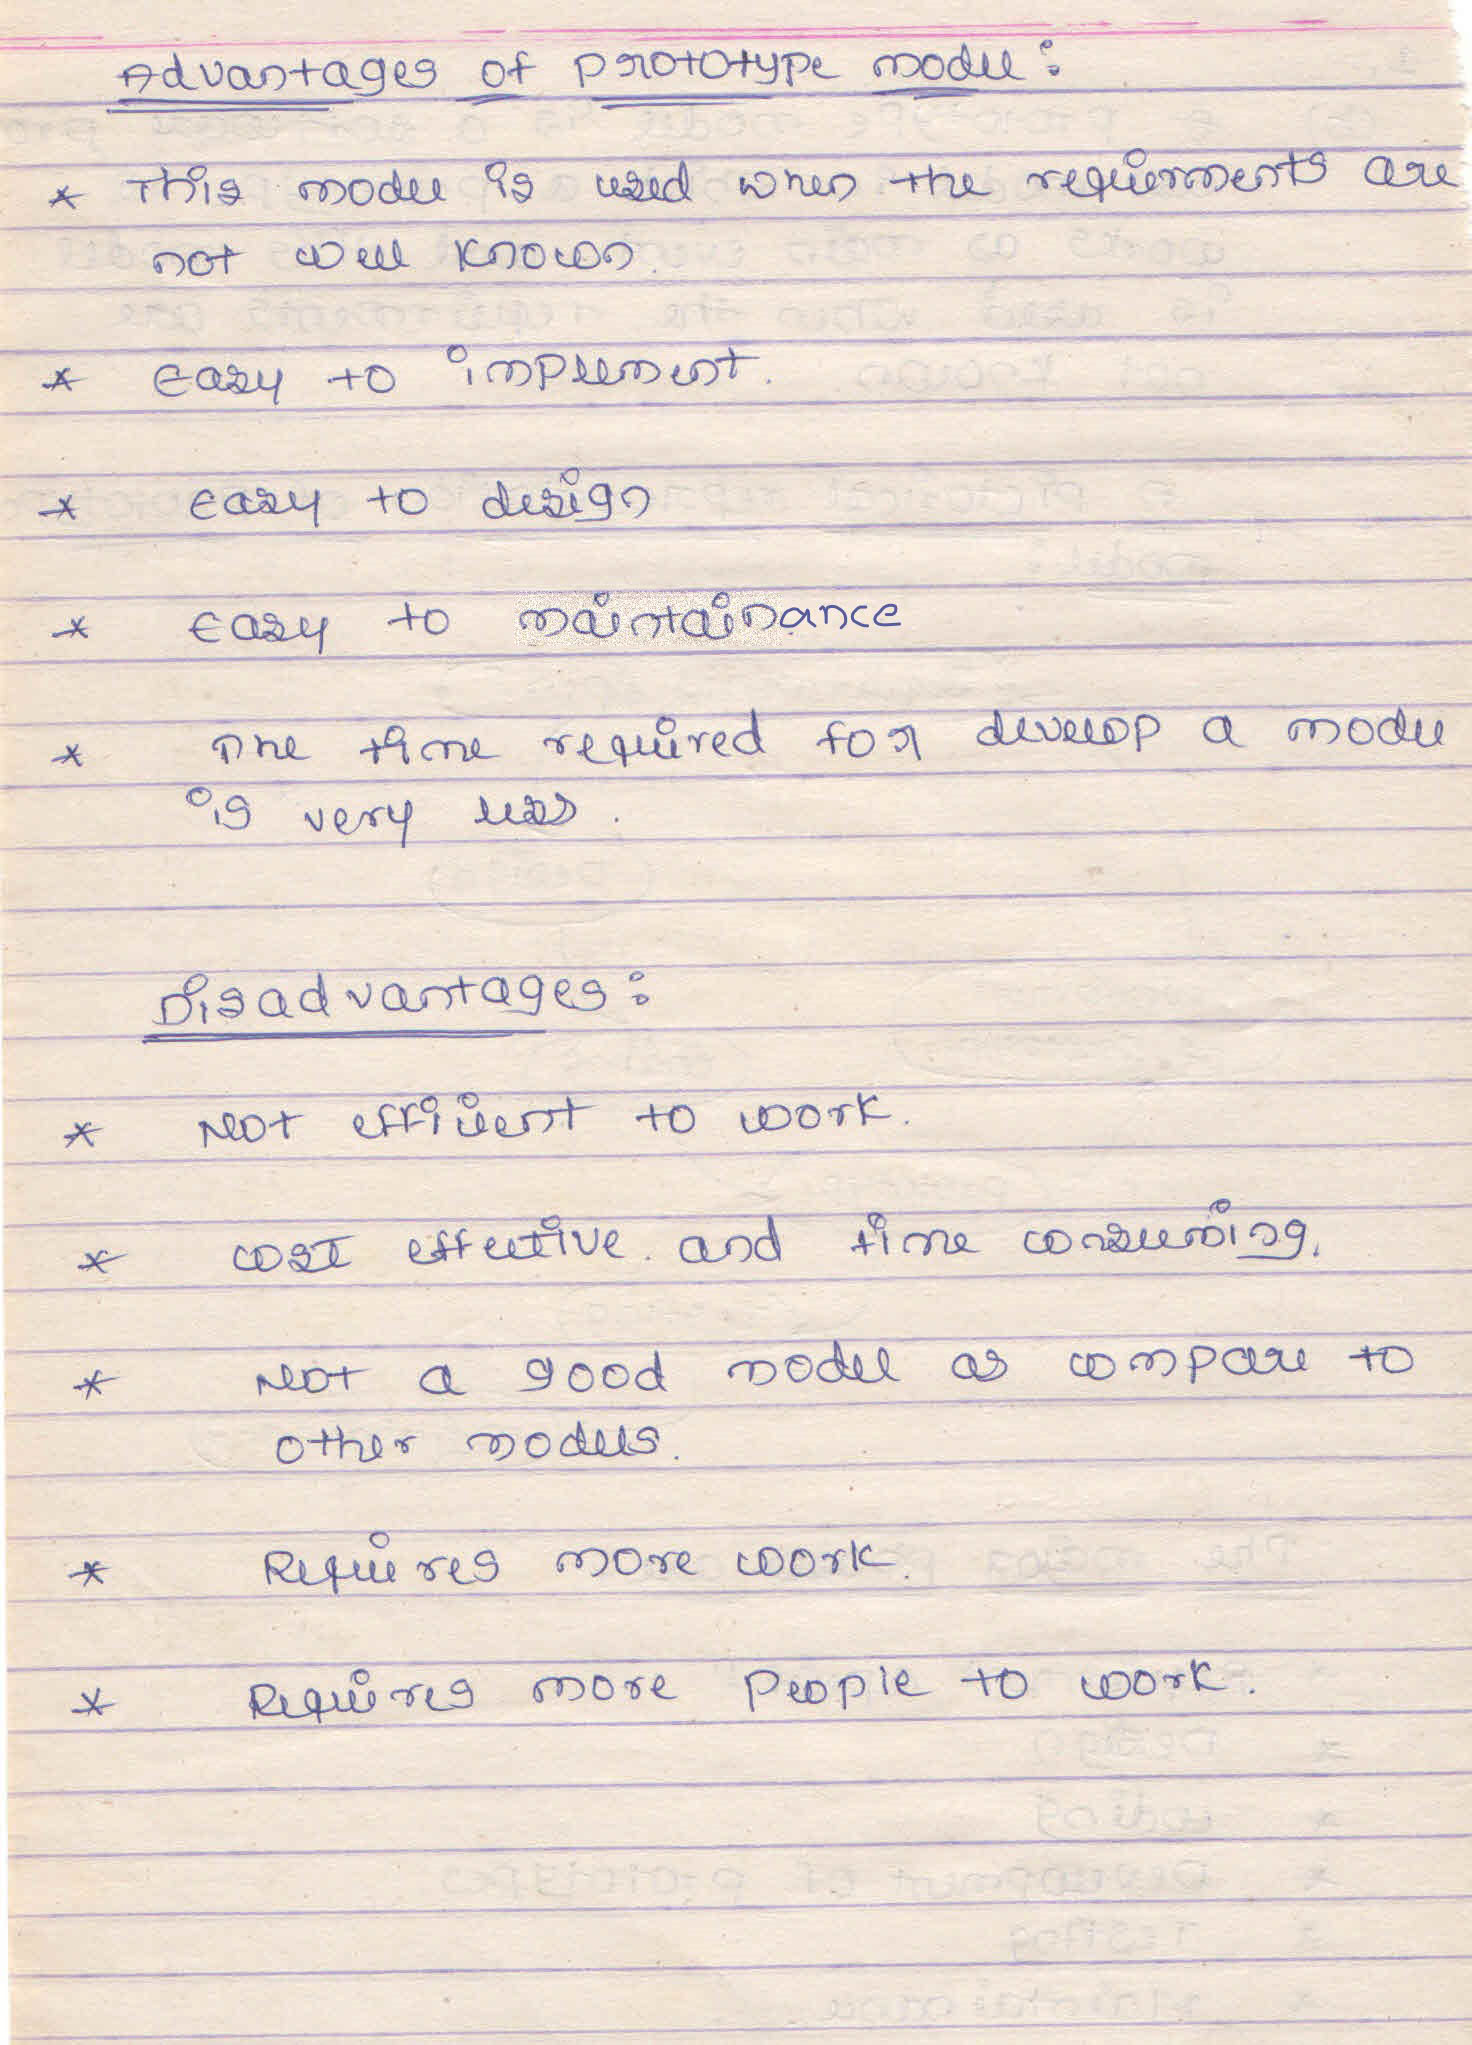 Advantages of prototype model:
* This model is used when the requierments are
not well known.
* Easy to implement.
* easy to design
* easy to maintainance
* The time required for develop a model
is very less.
Disadvantages:
* Not efficient to work.
* cost effective. and time consuming.
* Not a good model as compare to
other models.
* Requires more work.
* Requires more people to work.